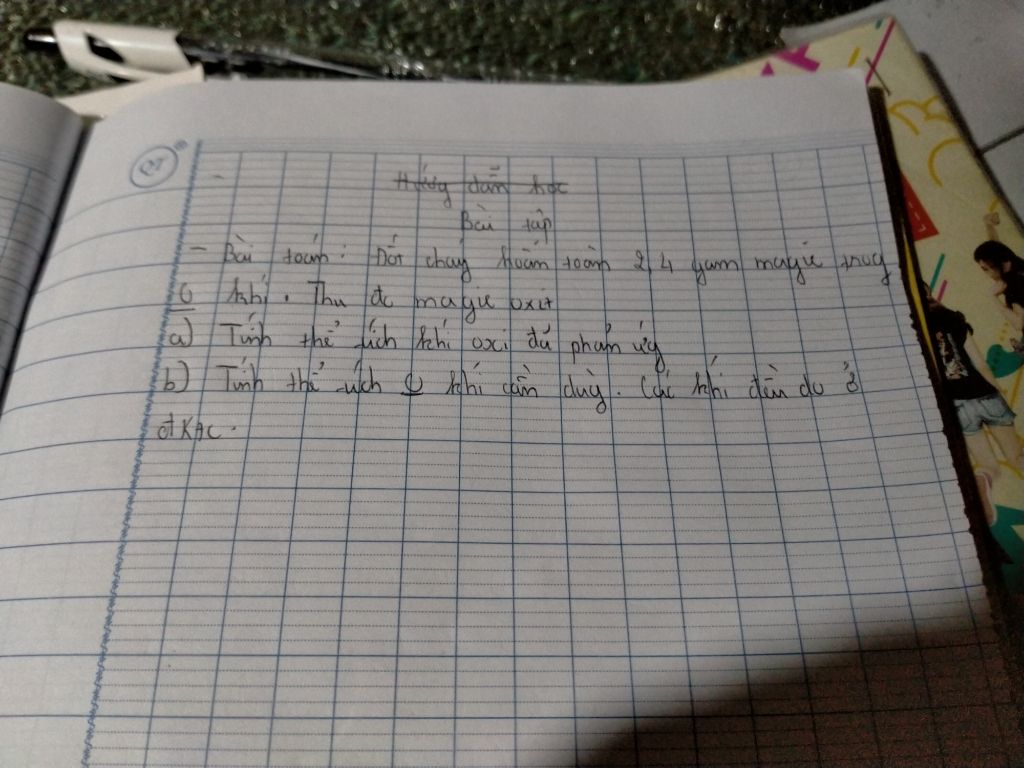 Hướng dẫn học
Bài tập
- Bài toán: Đốt cháy hoàn toàn 2,4 gam magie trog
khí. Thu đc magie oxit
a) Tính thể tích khí oxi đã phản ứg
b) Tính thể tích khí cần dùg. Các khí đều đo ở
đKTC.